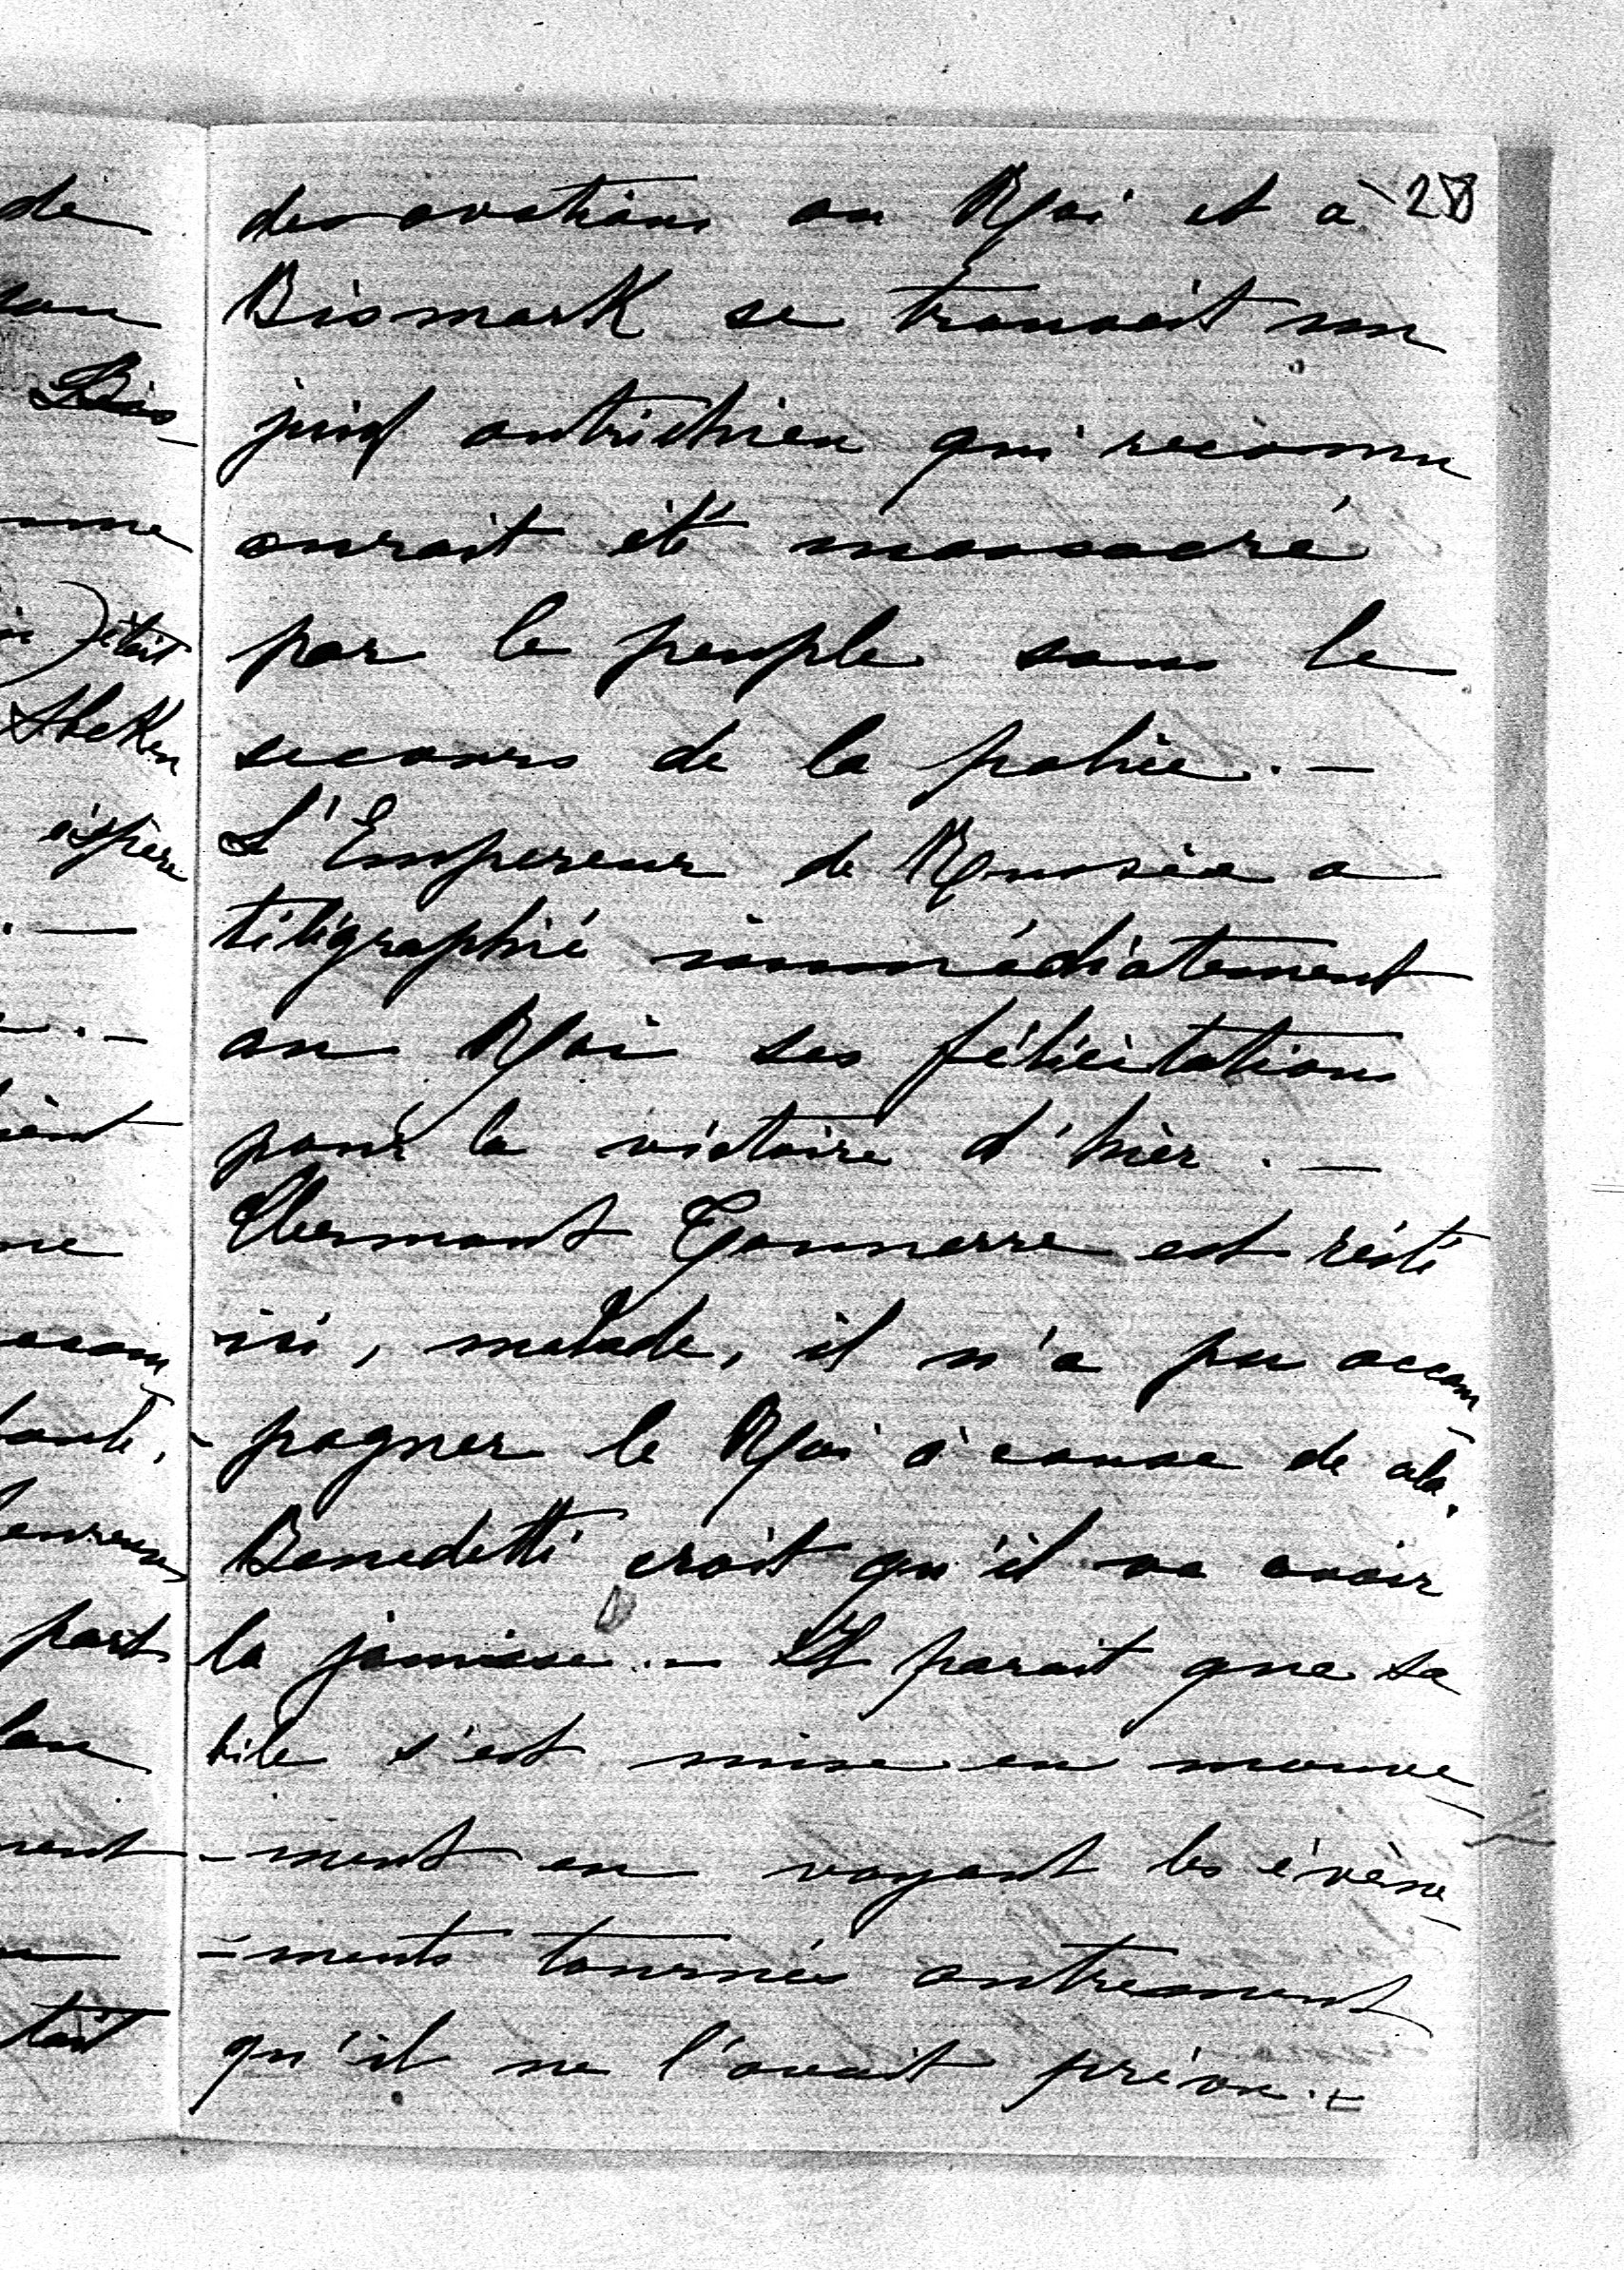 28
des ovations au Roi et à
Bismark se trouvait un
juif autrichien qui reconnu
aurait été massacré
par le peuple sans le
secours de la police. —
L'Empereur de Russie a
télégraphié immédiatement
au Roi ses félicitations
pour la victoire d'hier. —
Clermont Tonnerre est resté
ici, malade, il n'a pu accom
-pagner le Roi à cause de cela.
Benedetti croit qu'il va avoir
la jaunisse. — Il parait que sa
bile s'est mise en mouve
-ment en voyant les évène
-ments tournés autrement
qu'il ne l'avait prévu. —
de
Bis-
était
Abeken
espère
part